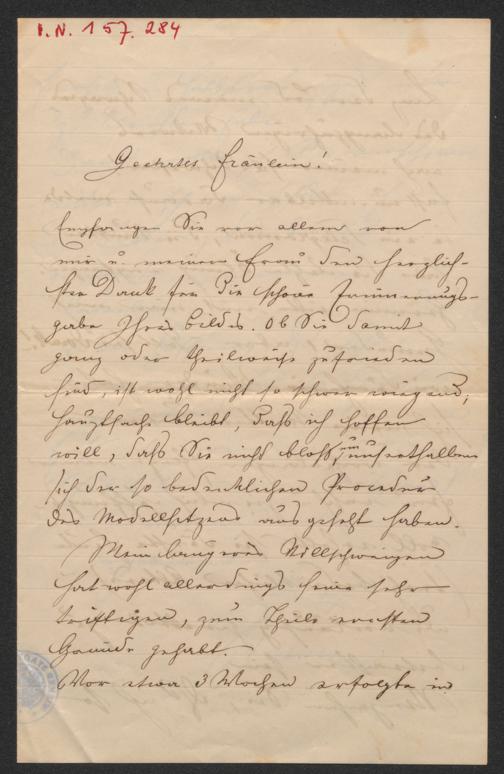 I.N. 157.284
Geehrtes Fräulein!
Empfangen Sie vor allem von
mir u. meiner Frau den herzlich-
sten Dank für die schöne Erinnerungs-
gabe Ihres Bildes. Ob Sie damit
ganz oder theilweise zufrieden
sind, ist wohl nicht so schwer wiegend;
Hauptsache bleibt, dass ich hoffen
will, dass Sie nicht bloss um unserthalben
sich der so bedenklichen Procedur
des Modellsitzens ausgesetzt haben.
Mein längeres Stillschweigen
hat wohl allerdings seine sehr
triftigen, zum Theile ernsten
Gründe gehabt.
Vor etwa 3 Wochen erfolgte in